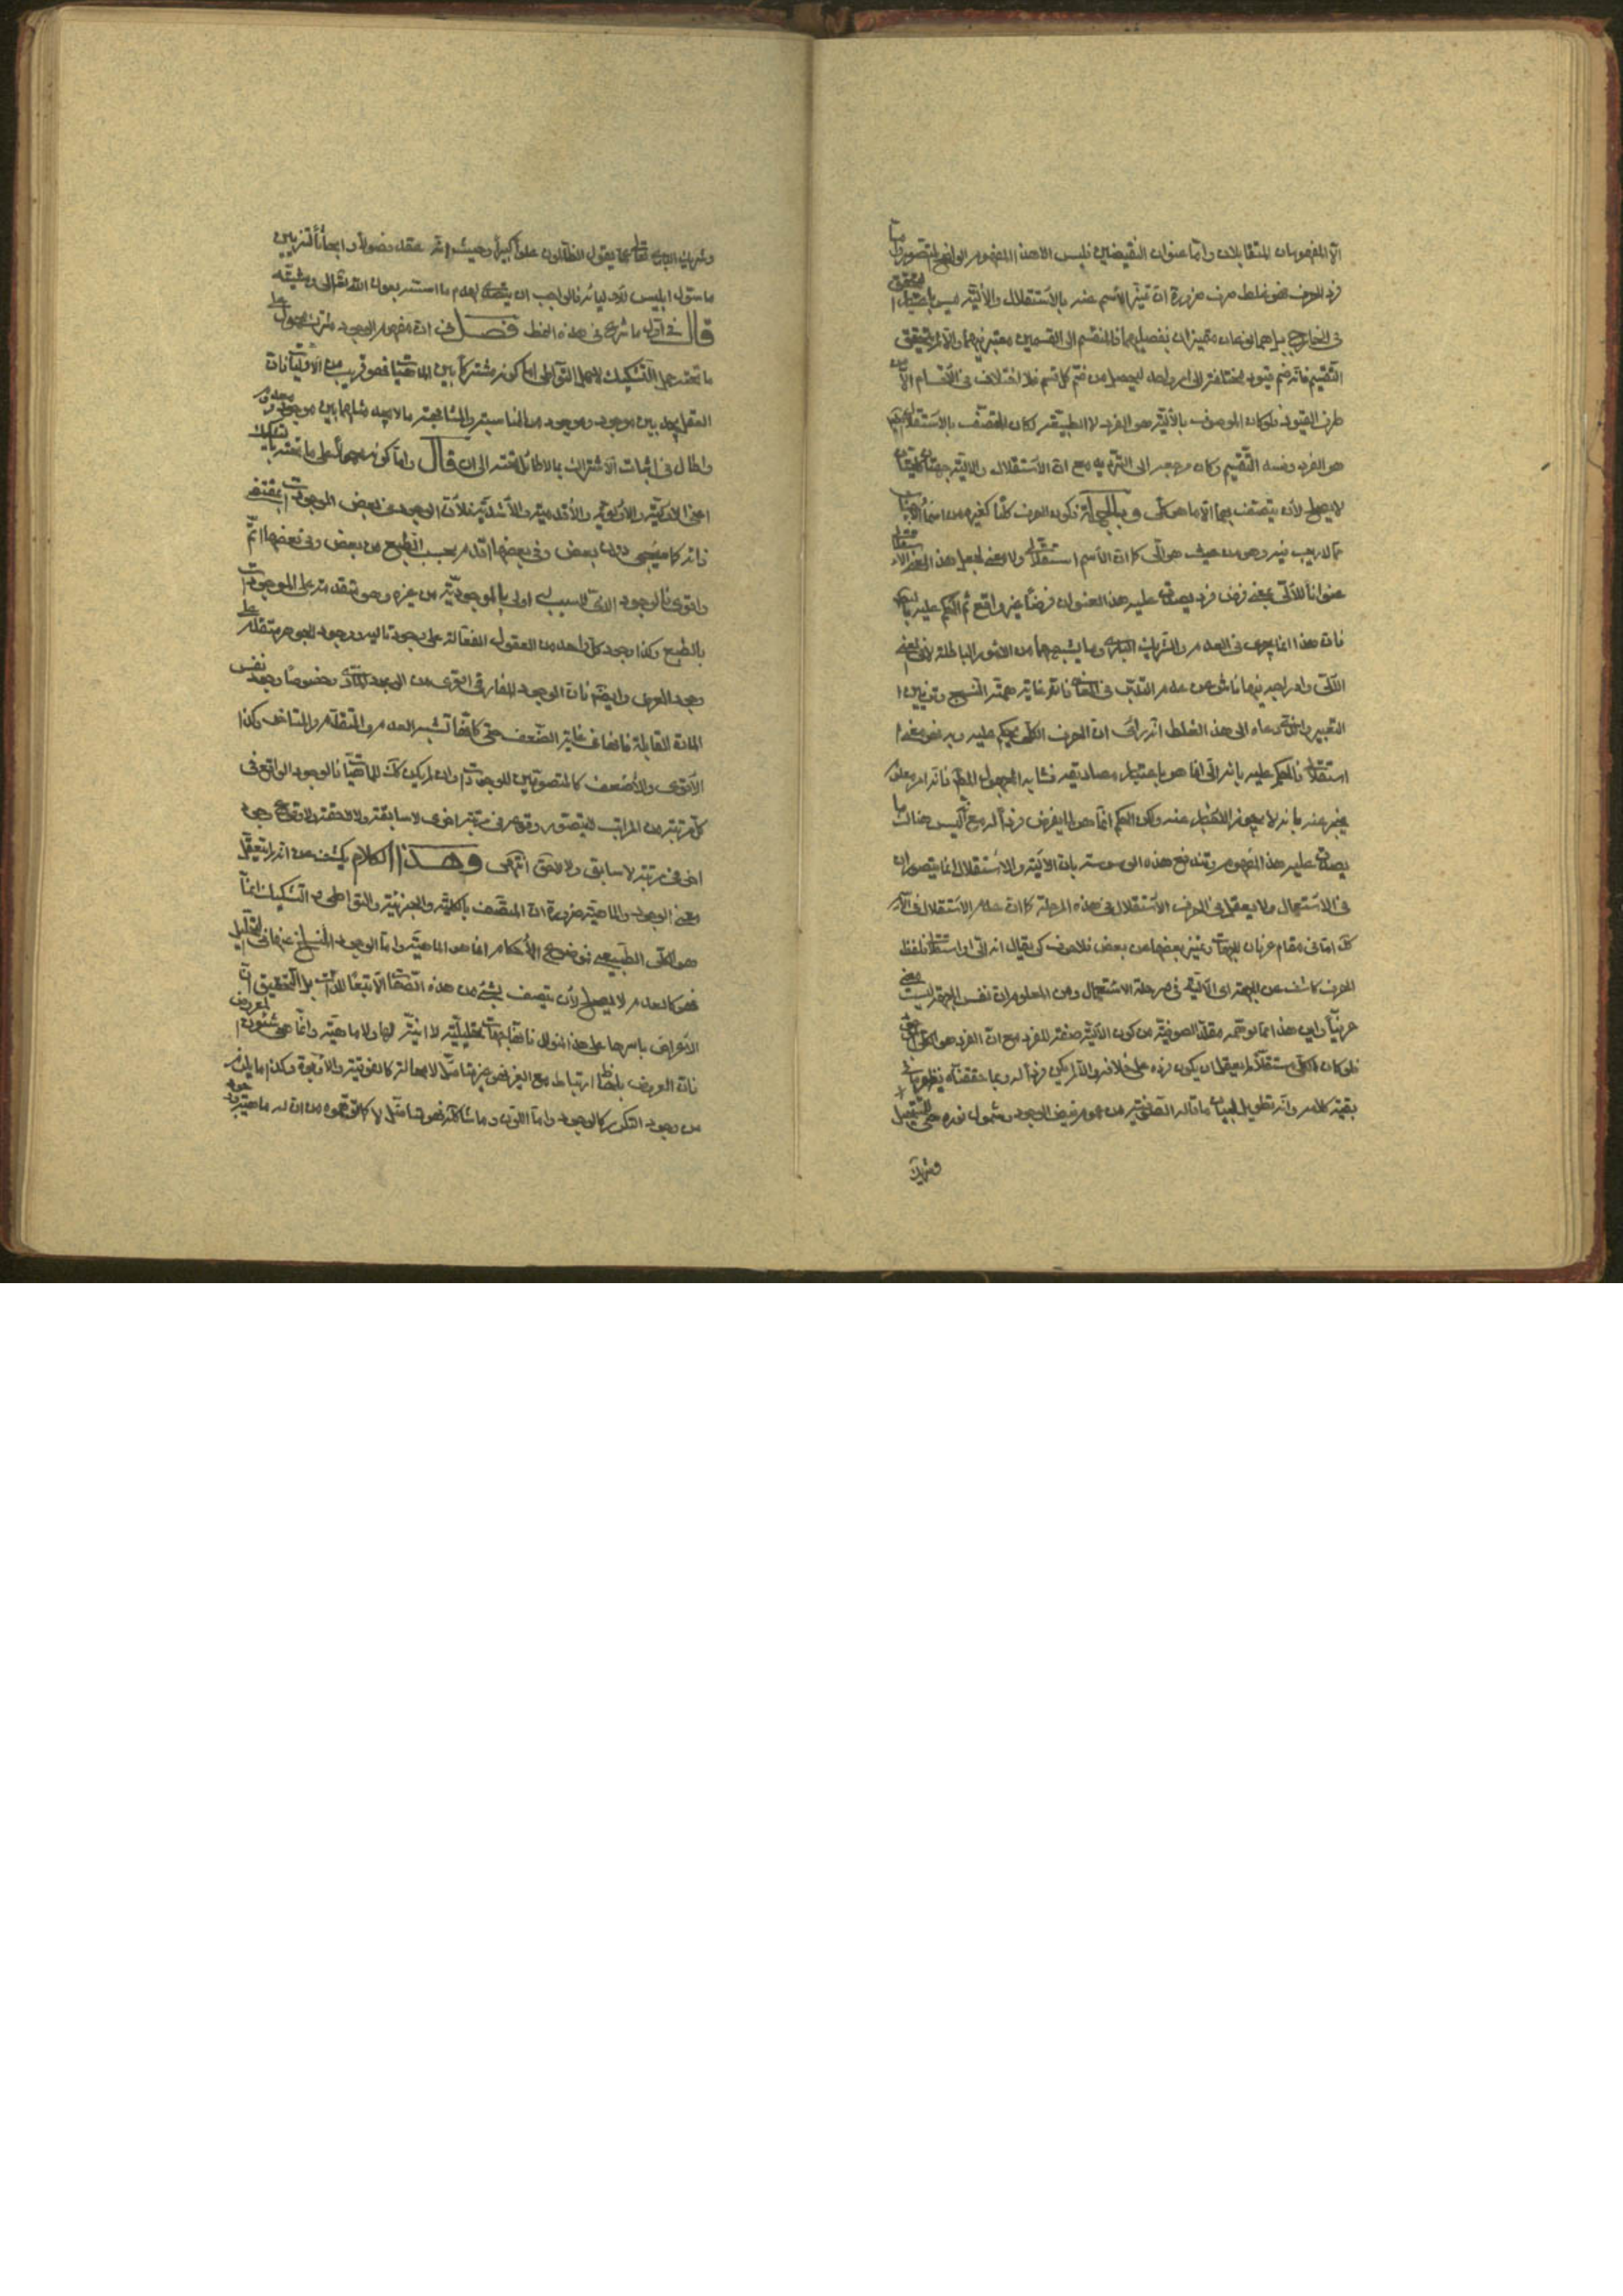 الا المفهومان المتقابلان وامّا عنوان النقيضين فليس الا هذا المفهوم الواضح
فرد الحرف فهو غلط صرف ضرورة انّ تميّز الاسم عنه بالاستقلال والآليّة ليس باعتبار التحقق
في الخارج بل هما نوعان متميزان بفصليهما فالمنقسم الى القسمين معتبر فيهما والّا لم يتحقق
التقسيم فانّه ضمّ قيود مختلفة الى امر واحد ليحصل من ضمّ كل قسم فلا اختلاف في الاقسام الا من
طرف القيود فلو كان الموصوف بالآليّة هو الفرد لا الطبيعة لكان المتصف بالاستقلال
هو الفرد وفسد التقسيم وكان مرجعه الى الترديد مع انّ الاستقلال والآلية جهتان كليتان
لا يصلح لأن يتصف بهما الّا ما هو كلّي وبالجملة فكون الحرف كليّا كغيره من اسماء الاجناس
ممّا لا ريب فيه وهو من حيث هو آلي كما انّ الاسم استقلالي ولا معنى لجعل هذا المعنى الاستقلالي
عنوانا للآلي بمعنى فرض فرد يصدق عليه هذا العنوان فرضا غير واقع ثم الحكم عليه
فان هذا انما يجرى في العدم والشريك الباري وما يشبههما من الامور الباطلة
الآلي وادراجه فيها ناش من عدم التدبّر في المقام فانّه غاية همته النسج وتزيين
التعبير والذي دعاه الى هذا الغلط انّه رأى انّ الحرف الكلّي يحكم عليه وبه فهو معنى
استقلالي فالحكم عليه بانه آلي انما هو باعتبار مصاديقه فشابه المجهول المطلق فانه امر معلوم
يخبر عنه بانه لا يجوز الاخبار عنه ولكن الحكم انّما هو لما يفرض فردا له مع انّه ليس هناك ما
يصدق عليه هذا المفهوم وتندفع هذه الوسوسة بان الآلية والاستقلال انما يتصوران
في الاستعمال ولا يعقل في الحرف الاستقلال في هذه المرحلة كما انّ عدم الاستقلال في الاسم
كك امّا في مقام عرفان الجهات وتميز بعضها من بعض فلا حرف كي يقال انه آلي او استقلالي فلفظ
الحرف كاشف عن الجهة اي الآلية في مرحلة الاستعمال ومن المعلوم ان نفس الجهة ليست معنى
حرفيّا واين هذا مما توهمه مقلّد الصوفية من كون الآلية صفة للفرد مع انّ الفرد هو الكلي
فلو كان الكلي مستقلا لم يعقل ان يكون فرده على خلافه والا لم يكن فردا له وبما حققناه يظهر ما في
بقية كلامه وانّه تطويل لبيان ما قاله الصوفية من عموم فيض الوجود وشمول نوره حتى للمستحيل
وشريك
وشريك الباري تعالى عمّا يقول الظالمون علوّا كبيرا وحيث انّه عقد فصولا وابحاثا لتزيين
ما سوّل ابليس لأوليائه فالواجب ان يتصدى لهدم ما اسسه بعون الله تعالى ومشيّته
قال في اول ما شرع في هذه الخطة فصل في ان مفهوم الوجود مشترك محمول على
ما تحته حمل التشكيك لا حمل التواطي امّا كونه مشتركا بين الماهيات فهو قريب من الاوليات فان
العقل يجد بين موجود وموجود من المناسبة والمشابهة ما لا يجد مثلها بين موجود ومعدوم
واطال في اثبات الاشتراك بما لا طائل تحته الى ان قال وامّا كونه محمولا على ما تحته بالتشكيك
اعنى الاولوية والاقدمية والأشدّية فلأنّ الوجود في بعض الموجودات مقتضى
ذاته كما سيجيء دون بعض وفي بعضها اقدم بحسب الطبع من بعض وفي بعضها اتمّ
واقوى فالوجود الذي لا سبب له اولى بالموجوديّة من غيره وهو متقدم على الموجودات
بالطبع وكذا وجود كل واحد من العقول الفعالة على وجود تاليه ووجود الجوهر متقدم على
وجود العرض وايضا فان الوجود المفارقي اقوى من الوجود المادّى وخصوصا وجود نفس
المادة القابلة فانها في غاية الضعف حتى كأنّها تشبه العدم والمتقدم والمتاخر وكذا
الأقوى والأضعف كالمقوّمين للوجودات وان لم يكن كك للماهيات فالوجود الواقع في
كل مرتبة من المراتب لا يتصوّر وقوعه في مرتبة اخرى لا سابقة ولا لاحقة ولا وقوع وجود
اخر في مرتبته لا سابق ولا لاحق انتهى وهذا الكلام يكشف عن انه لم يتعقّل
معنى الوجود والماهيّة ضرورة انّ المتّصف بالكلية والجزئية والتواطي والتشكيك انّما
هو الكلي الطبيعي فموضوع الأحكام انما هو الماهيّة وامّا الوجود المنسلخ عنها في التحليل
فهو كالعدم لا يصلح لأن يتصف بشيء من هذه الصفات الّا تبعا للذّات بل التحقيق انّ
الأعراض باسرها على هذا المنوال فانّها جهات تحليليّة لا انيّة لها ولا ماهيّة وانّما هي شئون المعروض
فانّ العرض بلحاظ ارتباطه مع الغير فهو غير متأصّل لا محالة كالفوقية والأبوة وكذا ما يلزم
من وجوده التكرر كالوجود وامّا اللون وما شاكله فهو متأصّل لا كما توهموه من ان له ماهيّة ووجود